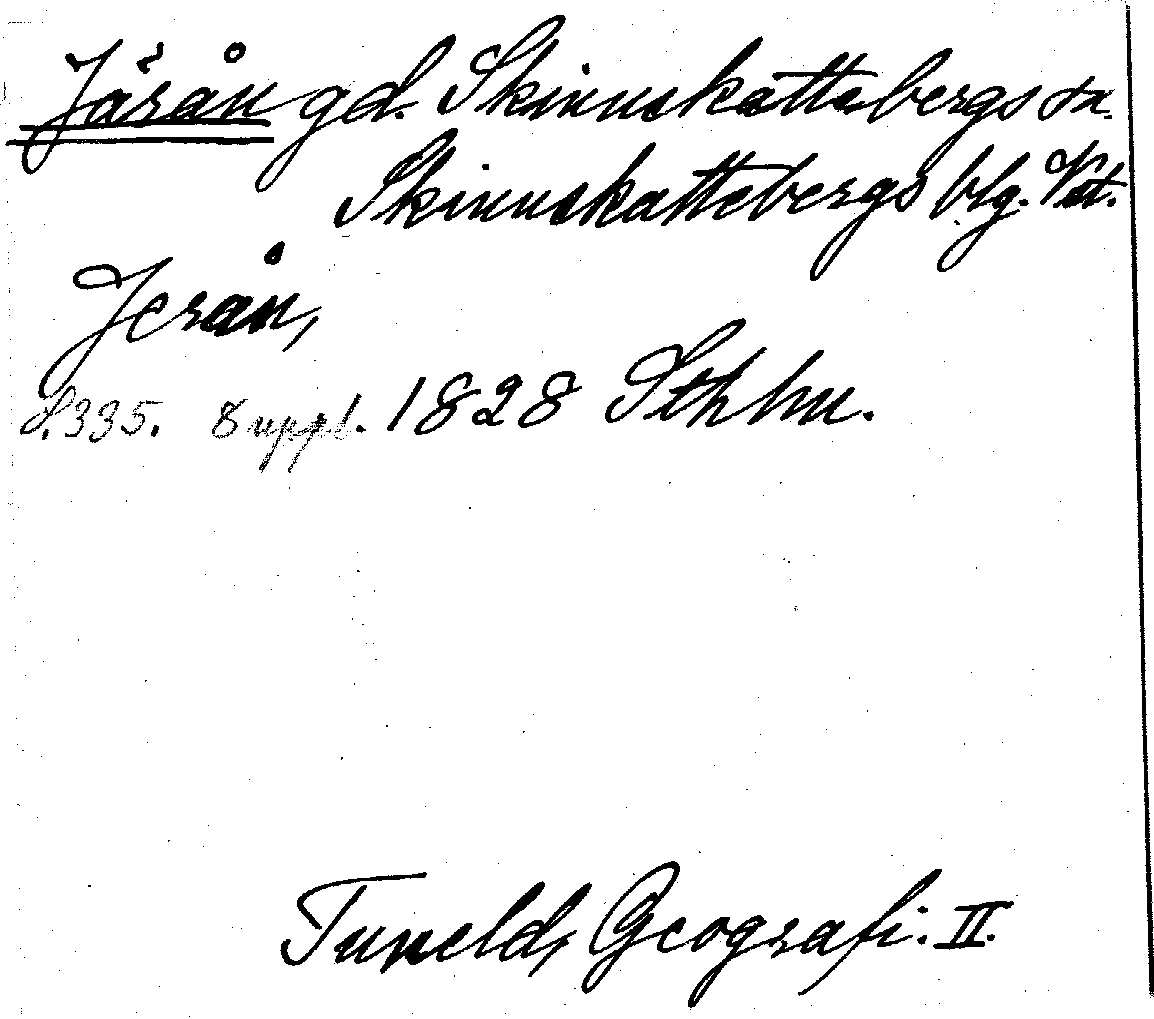 Järån gd. Skinnskattebergs sn.
Skinnskattebergs blg. Vstm.
Jerån,
S. 335. 8 uppl. 1828 Sthlm.
Tuneld, Geografi. II.